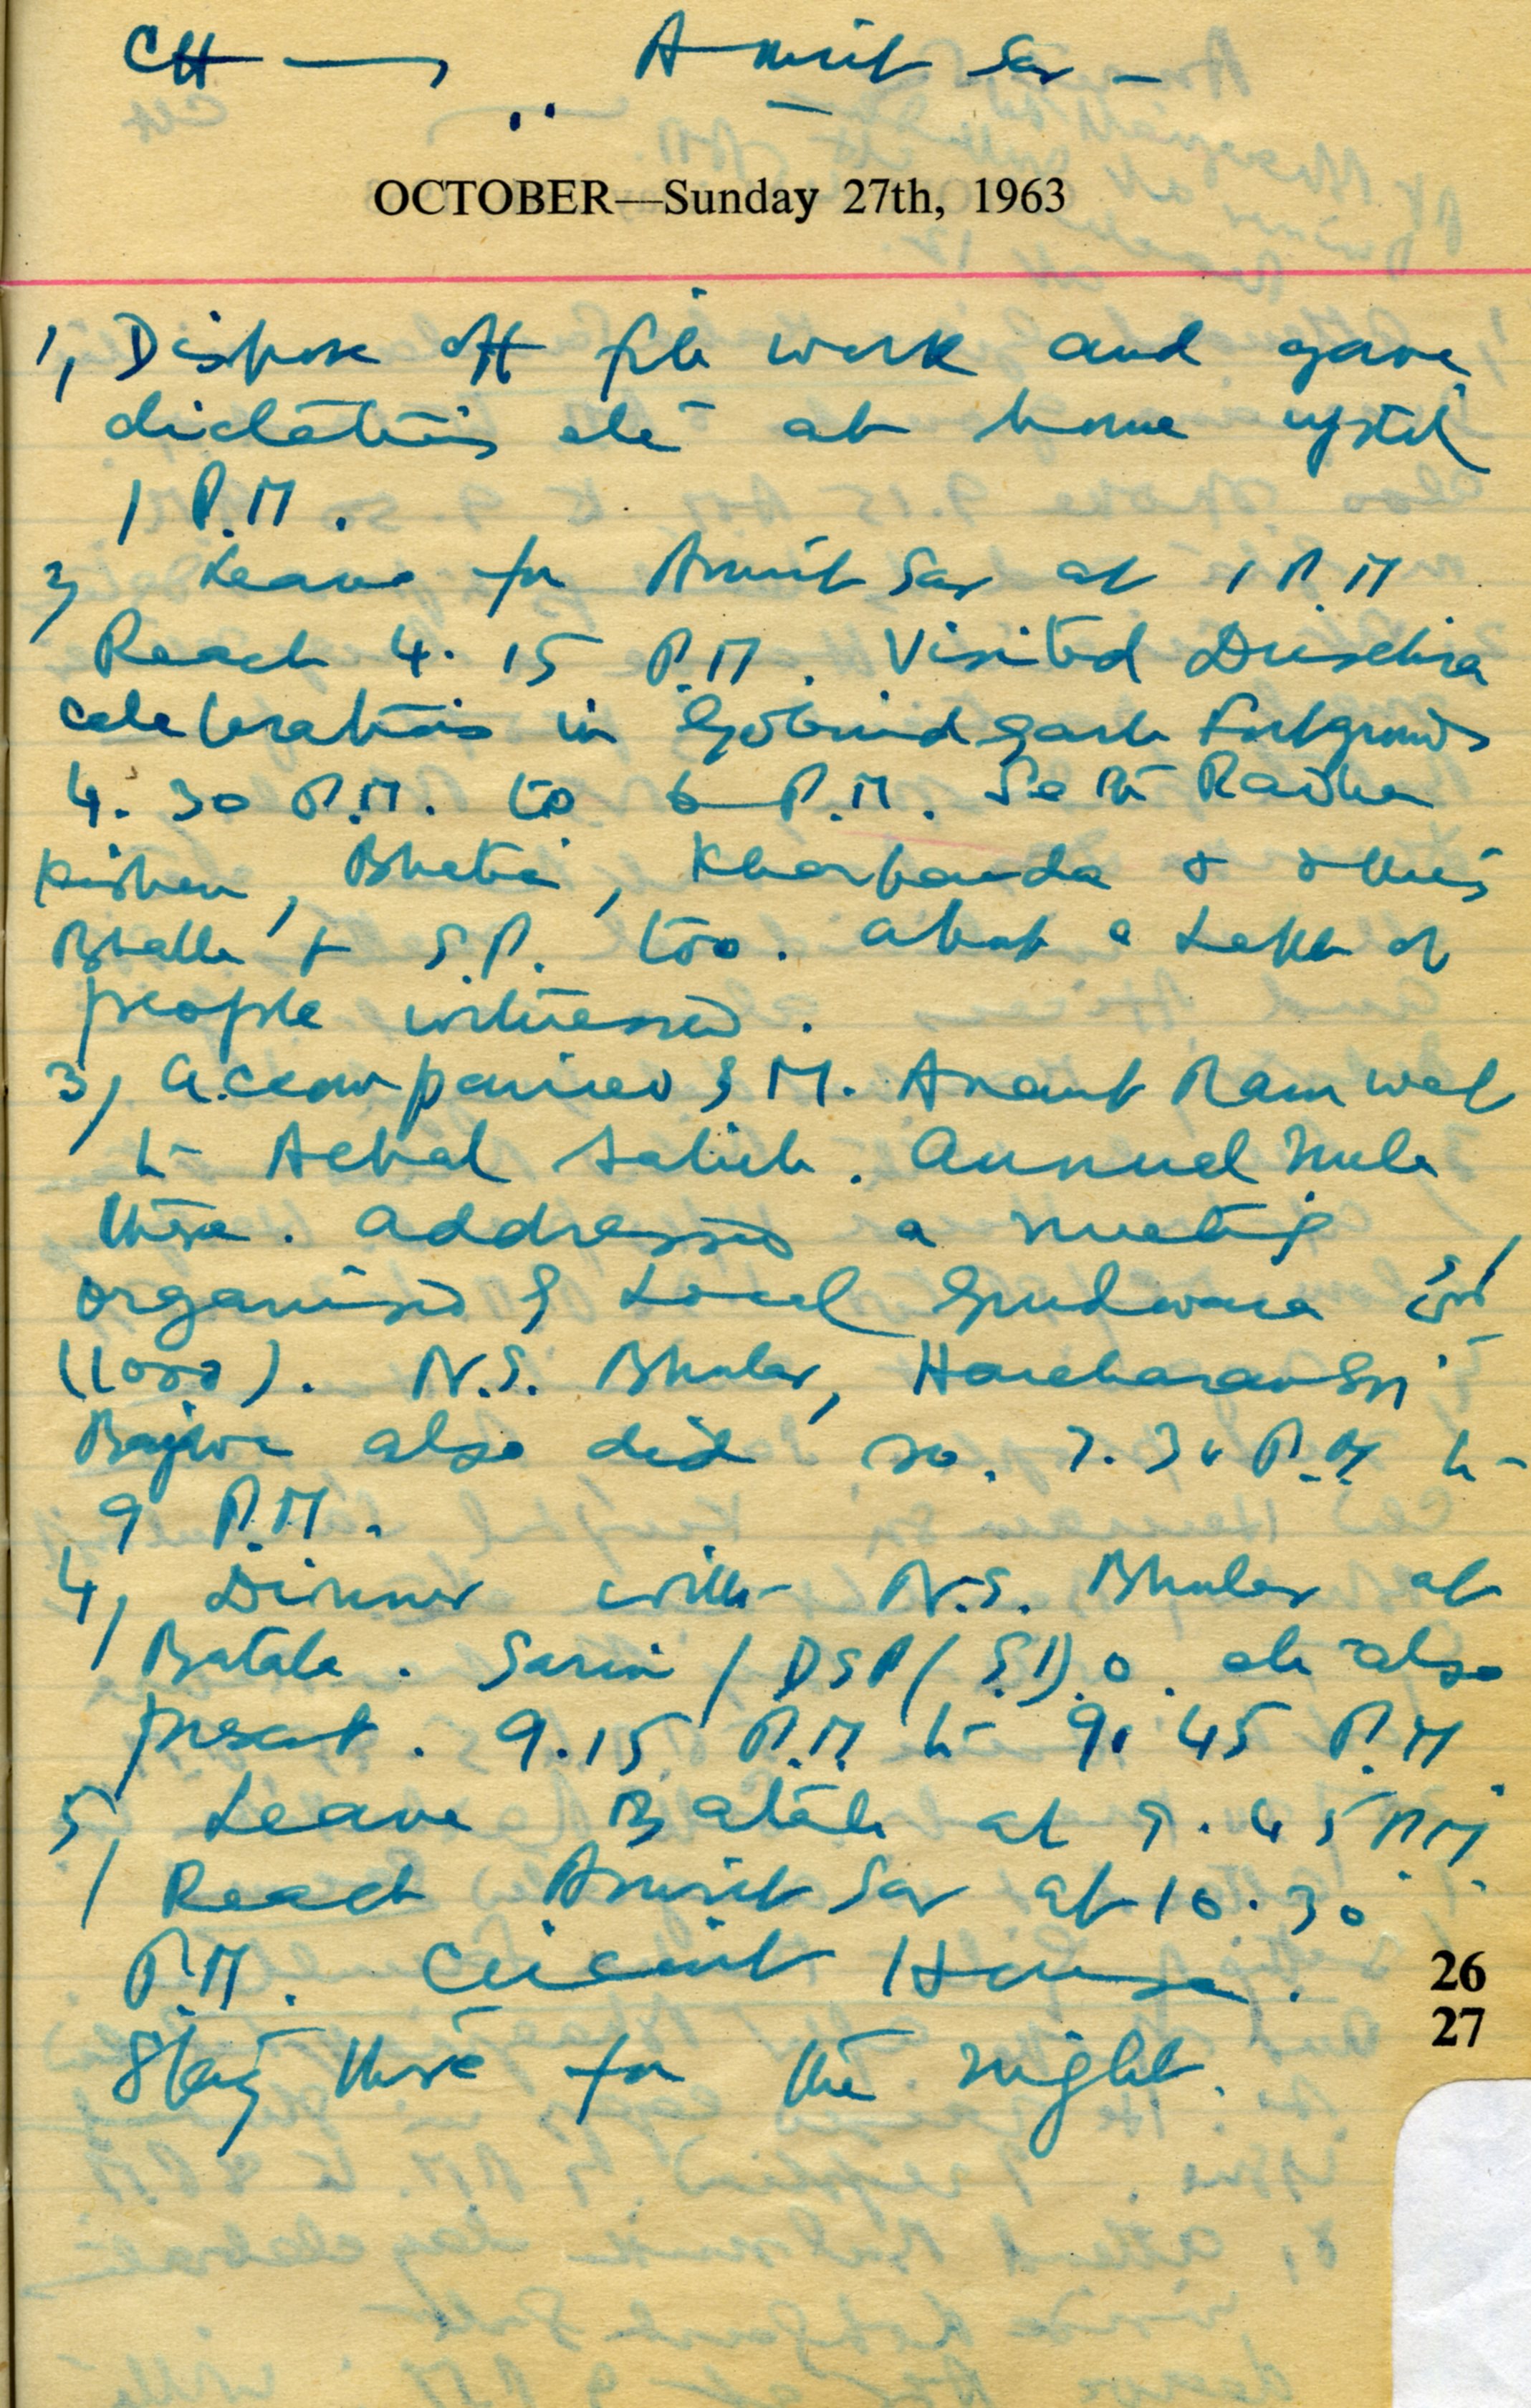 CH → Amrit Sar -
OCTOBER—Sunday 27th, 1963
1, Dispose off file work and gave
dictations etc at home upto
1 P.M.
2, Leave for Amrit Sar at 1 P.M
Reach 4.15 P.M. Visited Dusehra
celebrations in Gobindgarh Fort grounds
4.30 P.M. to 6 P.M. Seth Radha
Kishen, Bhatia, Kharbanda & others
Bhalla & S.P. too. about a Lakh of
people witnessed.
3, accompanied by M. Anant Ram
to Achal Sahib. Annual mela
there. addressed a meeting
organised by Local Gurdwara
(1000). N.S. Bhular, Harcharan Sn
Bajwa also did so. 7.30 P.M to
9 P.M.
4, Dinner with N.S. Bhular at
Batala. Sarin / DSP / S.D.O. etc also
present. 9.15 P.M to 9.45 P.M.
5, Leave Batala at 9.45 P.M.
Reach Amrit Sar at 10.30
P.M. Circuit House.
Stay there for the night.
26
27